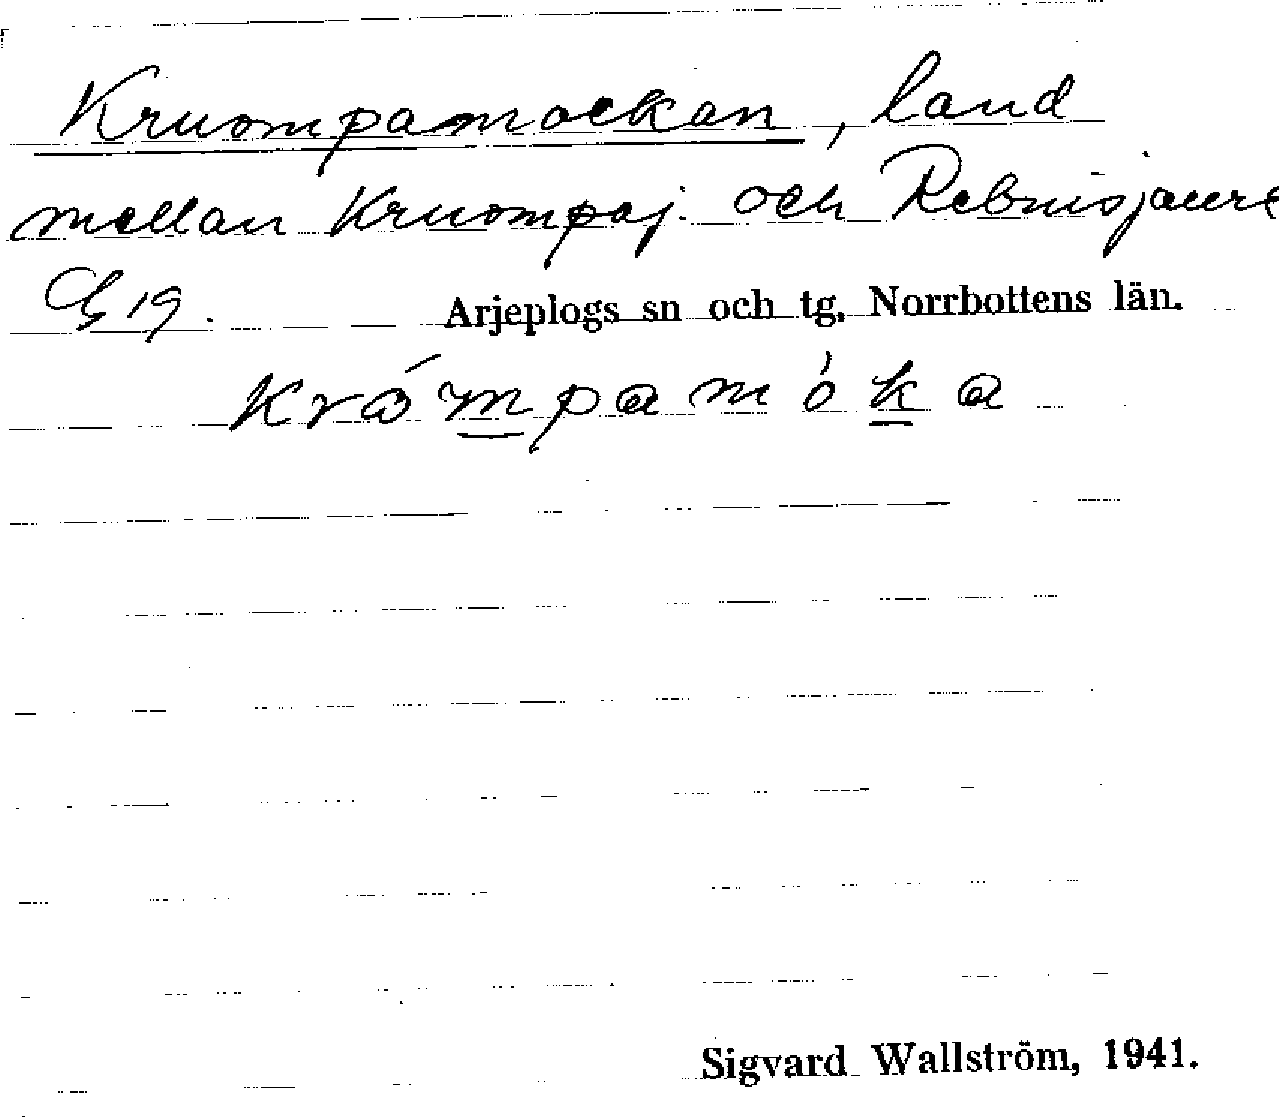 Kruompamockan, land
mellan Kruompaj. och Rebnisjaure
G 19. Arjeplogs sn och tg, Norrbottens län.
krómpamóka
Sigvard Wallström, 1941.